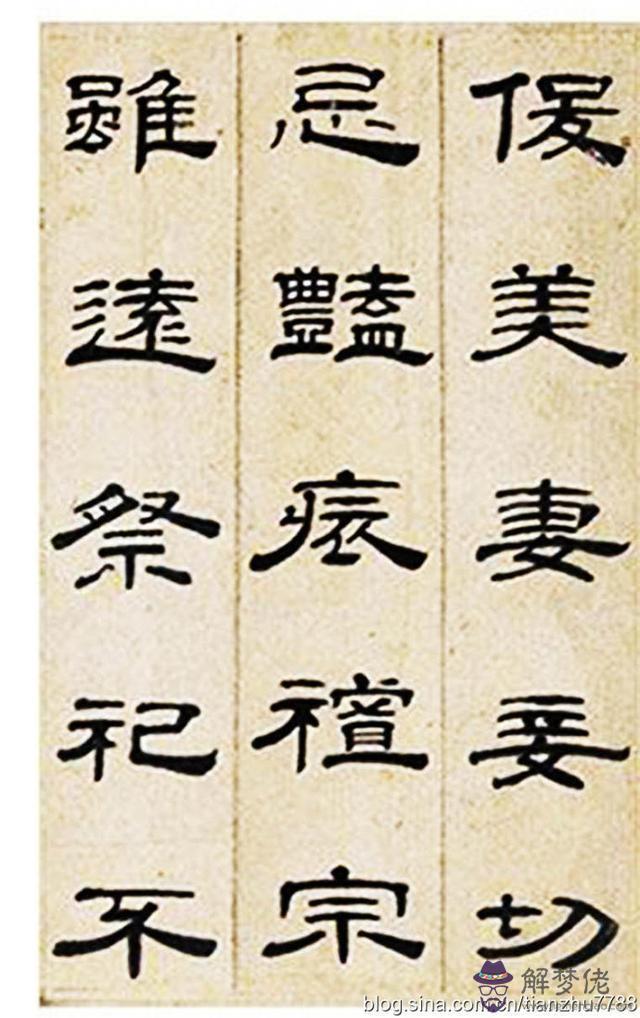 俊美妻妾切
忌豔粧祖宗
雖遠祭祀不
解梦佬
blog.sina.com.cn/tianzhu7788